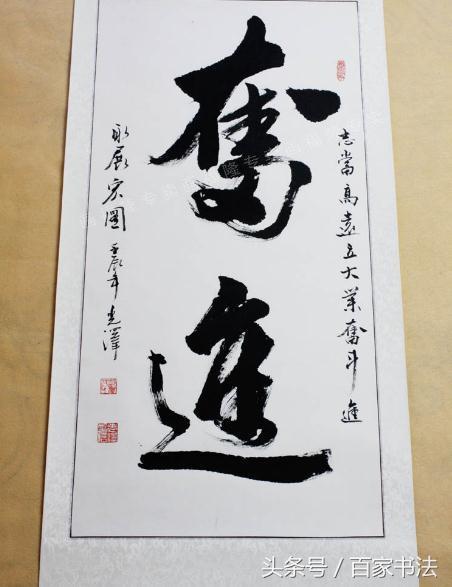 志當高遠立大業奮斗進
奮進
永展宏圖 壬辰年 光澤
头条号 / 百家书法